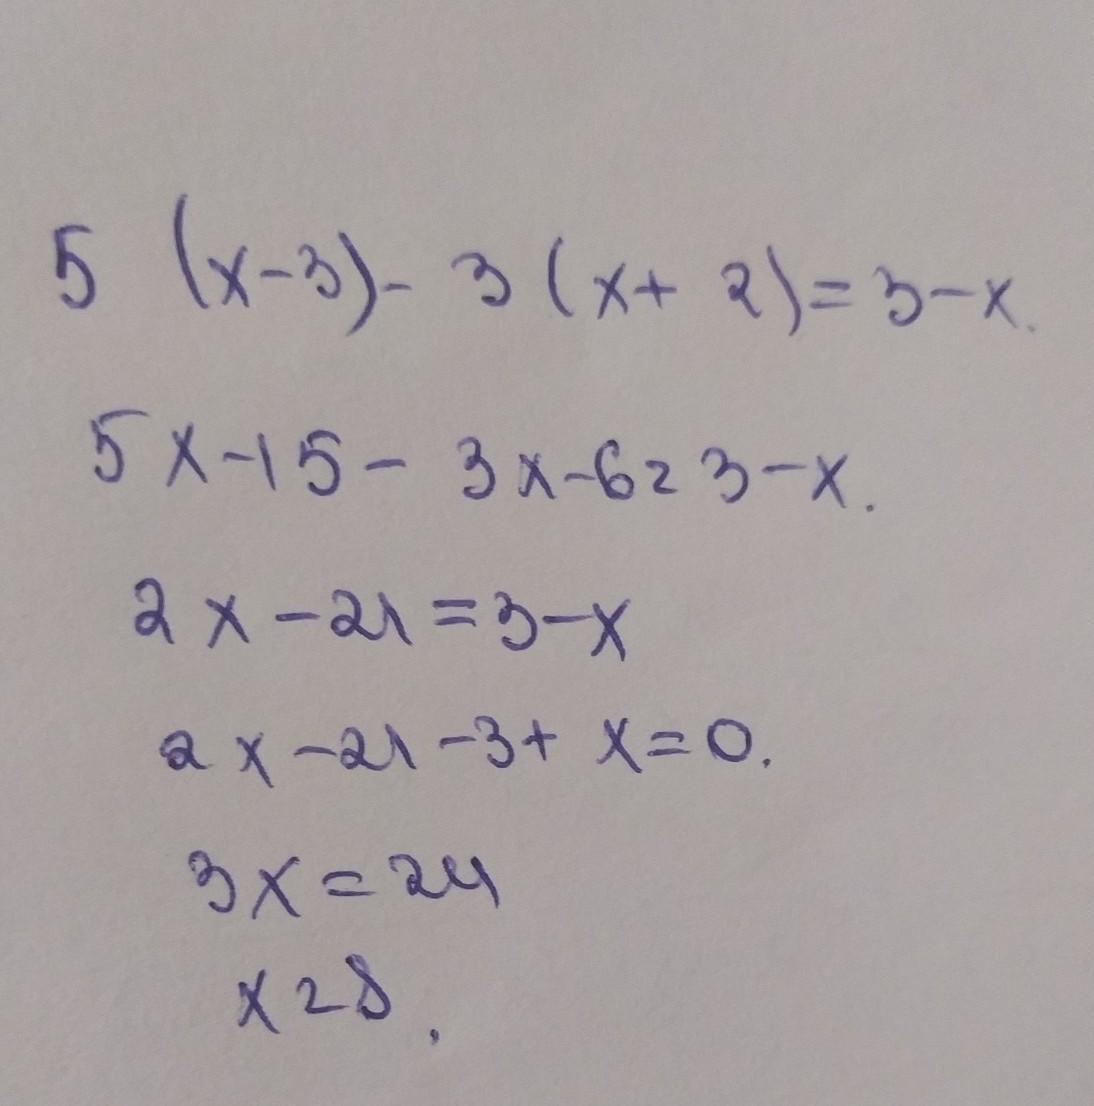 5 (x-3)- 3(x+ 2)=3-x.
5x-15- 3x-6=3-x.
2x-21=3-x
2x-21-3+ x=0.
3x=24
x=8.